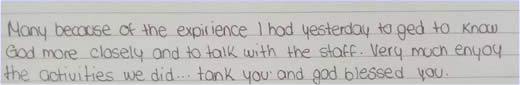 Many because of the expirience I had yesterday to ged to know
God more closely and to talk with the staff. Very much enyoy
the activities we did... tank you and god blessed you.